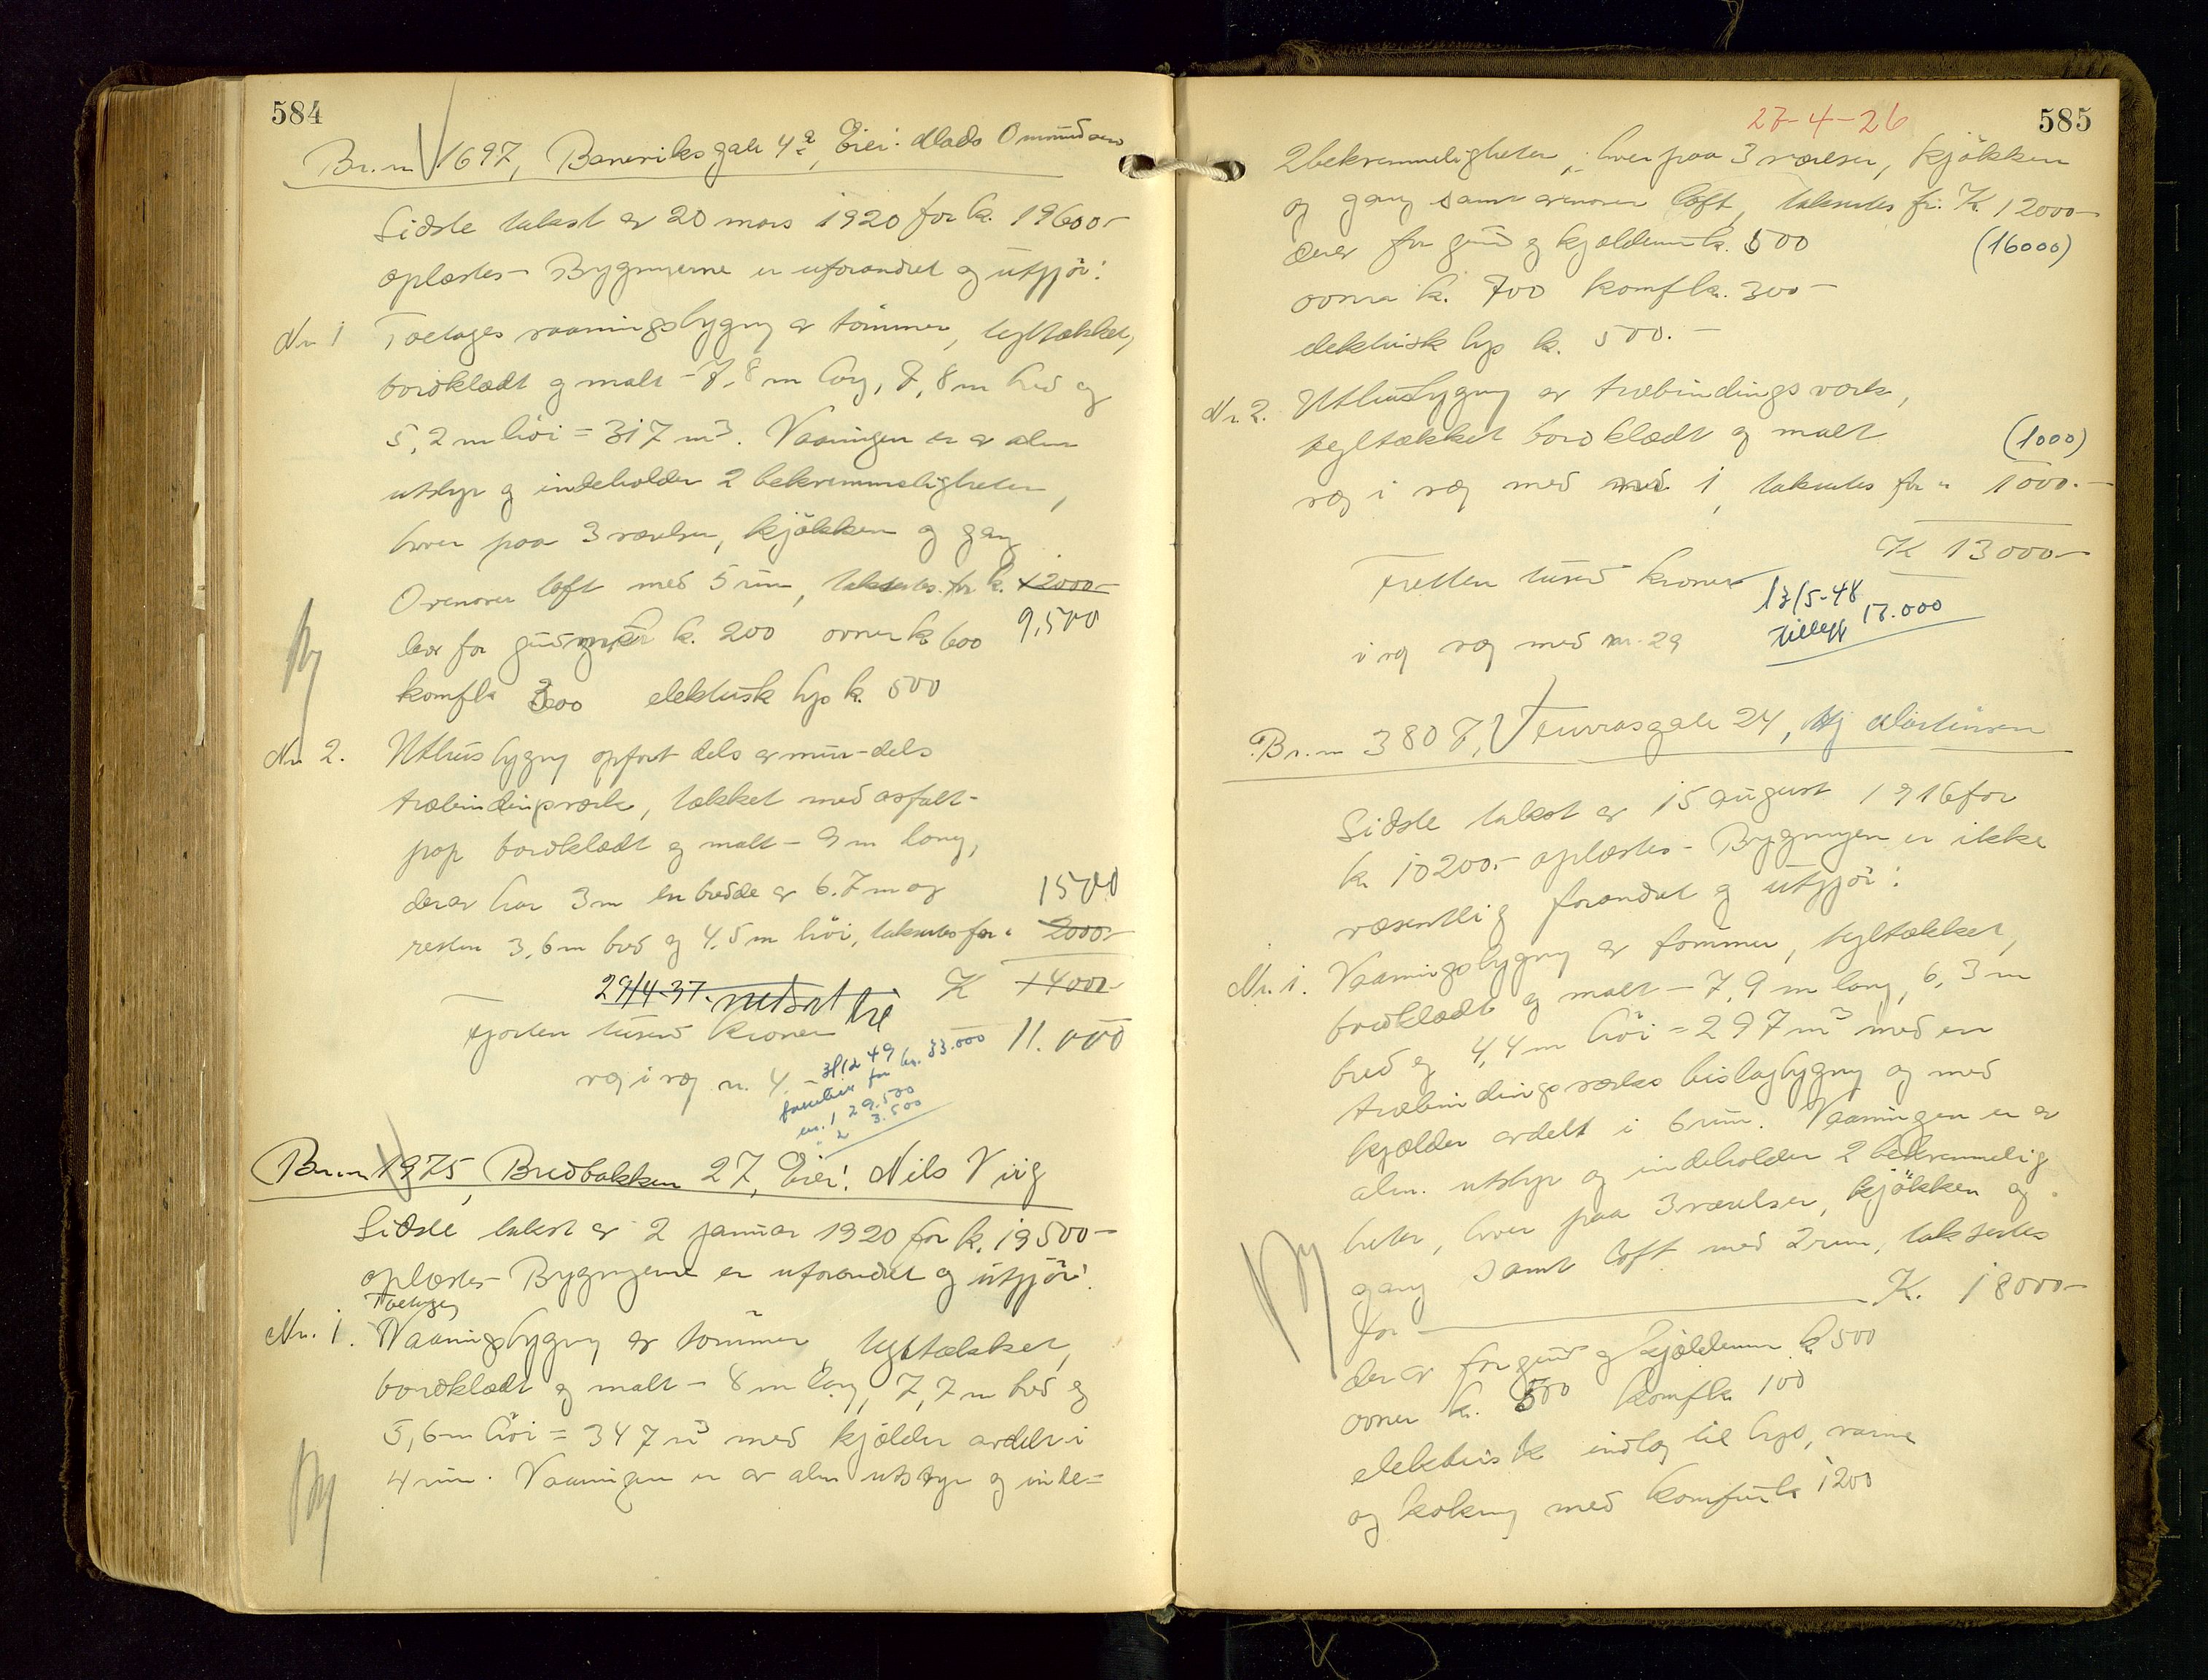 584
Br.nr 1697, Baneviksgate 4a, Eier: Mads Omundsen
Sidste takst av 20 mars 1920 for k. 19600-
oplæstes - Bygningerne er uforandret og utgjör:
Nr 1 Toetages vaaningsbygng av tömmer, tegltækket,
bordklædt og malt - 7,8 m lang, 7,8 m bred og
5,2 m höi = 317 m3. Vaaningen er av alm
utstyr og indeholder 2 bekvemmeligheter,
hver paa 3 værelser, kjökken og gang
Ovenover loft med 5 rum, taksertes for k. 12000-
9,500
herav for grundmur k. 200 ovner k 600
komf k 300 elektrisk lys k. 500
Nr 2. Uthusbygng opfört dels av mur - dels
træbindingsværk, tækket med asfalt-
pap bordklædt og malt - 9 m lang,
derav har 3 m en bredde av 6.7 m og
1500
resten 3,6 m bred og 4,5 m höi, taksertes for " 2000-
29/4-37. nedsat til K 14000-
Fjorten tusend kroner 11.000
væg i væg nr. 4. - 31/12 49
for kr. 33.000
nr. 1 29.500
" 2 3.500
Br.nr 1975, Bredbakken 27, Eier: Nils Viig
Sidste takst av 2 januar 1920 for k. 19500-
oplæstes - Bygngerne er uforandret og utgjör:
Toetages
Nr. 1. Vaaningsbygng av tömmer, tegltækket,
bordklædt og malt - 8 m lang, 7,7 m bred og
5,6 m höi = 347 m3 med kjælder avdelt i
4 rum. Vaaningen er av alm utstyr og inde=
27-4-26
585
2 bekvemmeligheter, hver paa 3 værelser, kjökken
og gang samt ovenover loft, taksertes for K. 12000-
derav for grund og kjældermur k. 500 (16000)
ovner k. 700 komf k. 300-
elektrisk lys k. 500.-
Nr 2. Uthusbygng av træbindingsværk,
tegltækket bordklædt og malt (1000)
væg i væg med nr 1, taksertes for " 1000.-
K 13000-
Tretten tusend kroner 13/5-48
tillegg 17.000
væg i væg med nr. 29
Br.nr 3807, Furrasgate 24, Hj Martinsen
Sidste takst av 15 august 1916 for
kr 10200.- oplæstes - Bygningen er ikke
væsentlig forandret og utgjör:
Nr. 1. Vaaningsbygng av tömmer, tegltækket,
bordklædt og malt - 7,9 m lang, 6,3 m
bred og 4,4 m höi = 297 m3 med en
træbindingsværks bislagbygng og med
kjælder avdelt i 6 rum. Vaaningen er av
alm. utstyr og indeholder 2 bekvemmelig
heter, hver paa 3 værelser, kjökken og
gang samt loft med 2 rum, taksertes
for K. 18000-
derav for grund og kjældermur k 500
ovner k. 500 komf k 100
elektrisk indlæg til lys, varme
og kokning med komfur k 1200